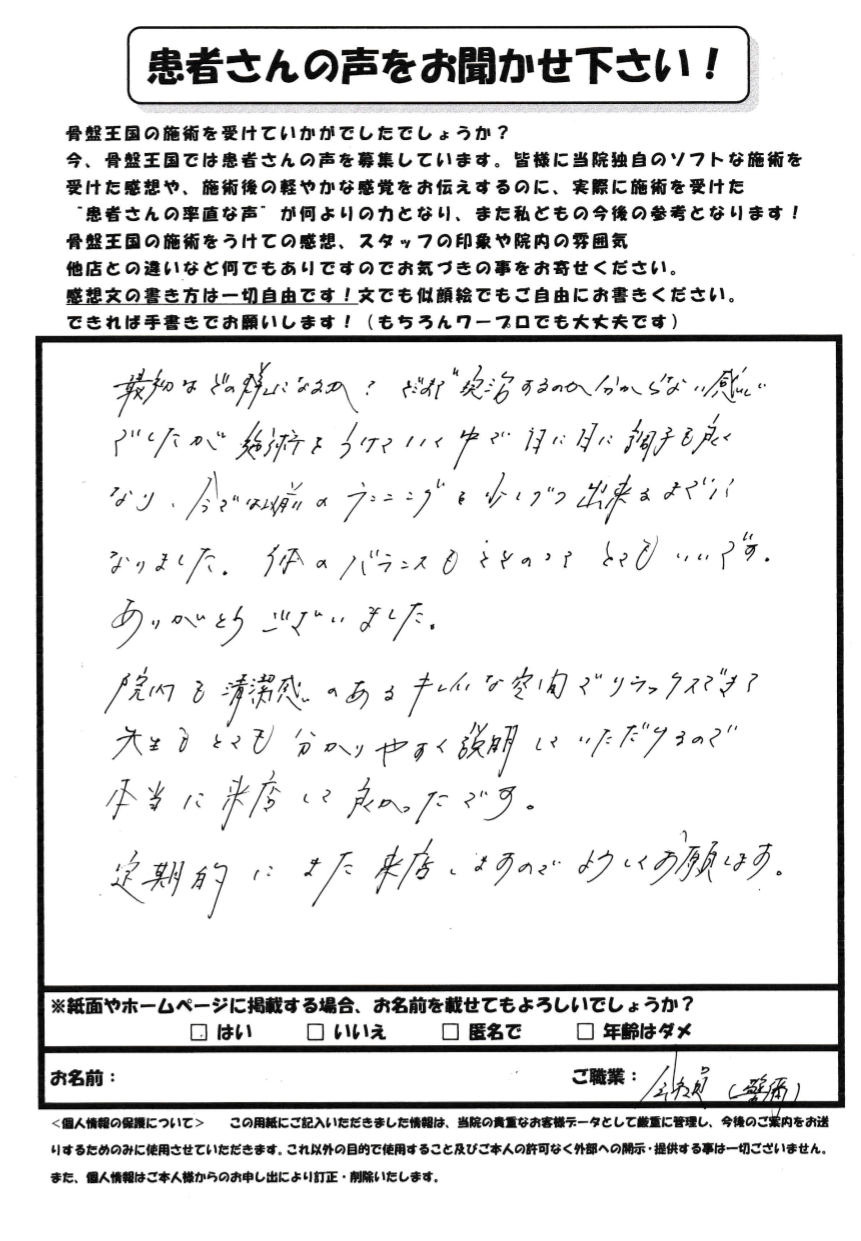 患者さんの声をお聞かせ下さい！
骨盤王国の施術を受けていかがでしたでしょうか？
今、骨盤王国では患者さんの声を募集しています。皆様に当院独自のソフトな施術を
受けた感想や、施術後の軽やかな感覚をお伝えするのに、実際に施術を受けた
“患者さんの率直な声”が何よりの力となり、また私どもの今後の参考となります！
骨盤王国の施術をうけての感想、スタッフの印象や院内の雰囲気
他店との違いなど何でもありですのでお気づきの事をお寄せください。
感想文の書き方は一切自由です！文でも似顔絵でもご自由にお書きください。
できれば手書きでお願いします！（もちろんワープロでも大丈夫です）
最初はどの様になるか？ 完治するのか分からない感じ
でしたが施術をうけていく中で日に日に調子も良く
なり、今では以前のランニングも少しづつ出来るまでに
なりました。体のバランスもととのってとてもいいです。
ありがとうございました。
院内も清潔感のあるキレイな空間でリラックスできて
先生もとても分かりやすく説明していただけるので
本当に来店して良かったです。
定期的にまた来店しますのでよろしくお願します。
※紙面やホームページに掲載する場合、お名前を載せてもよろしいでしょうか？
□ はい □ いいえ □ 匿名で □ 年齢はダメ
お名前： ご職業：会社員（警備）
＜個人情報の保護について＞ この用紙にご記入いただきました情報は、当院の貴重なお客様データとして厳重に管理し、今後のご案内をお送
りするためのみに使用させていただきます。これ以外の目的で使用すること及びご本人の許可なく外部への開示・提供する事は一切ございません。
また、個人情報はご本人様からのお申し出により訂正・削除いたします。